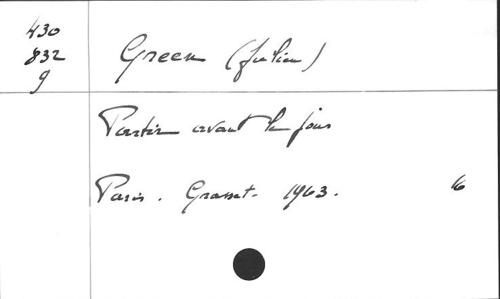 430
832
g
Green (Julien)
Partir avant le jour
Paris. Grasset. 1963. 16